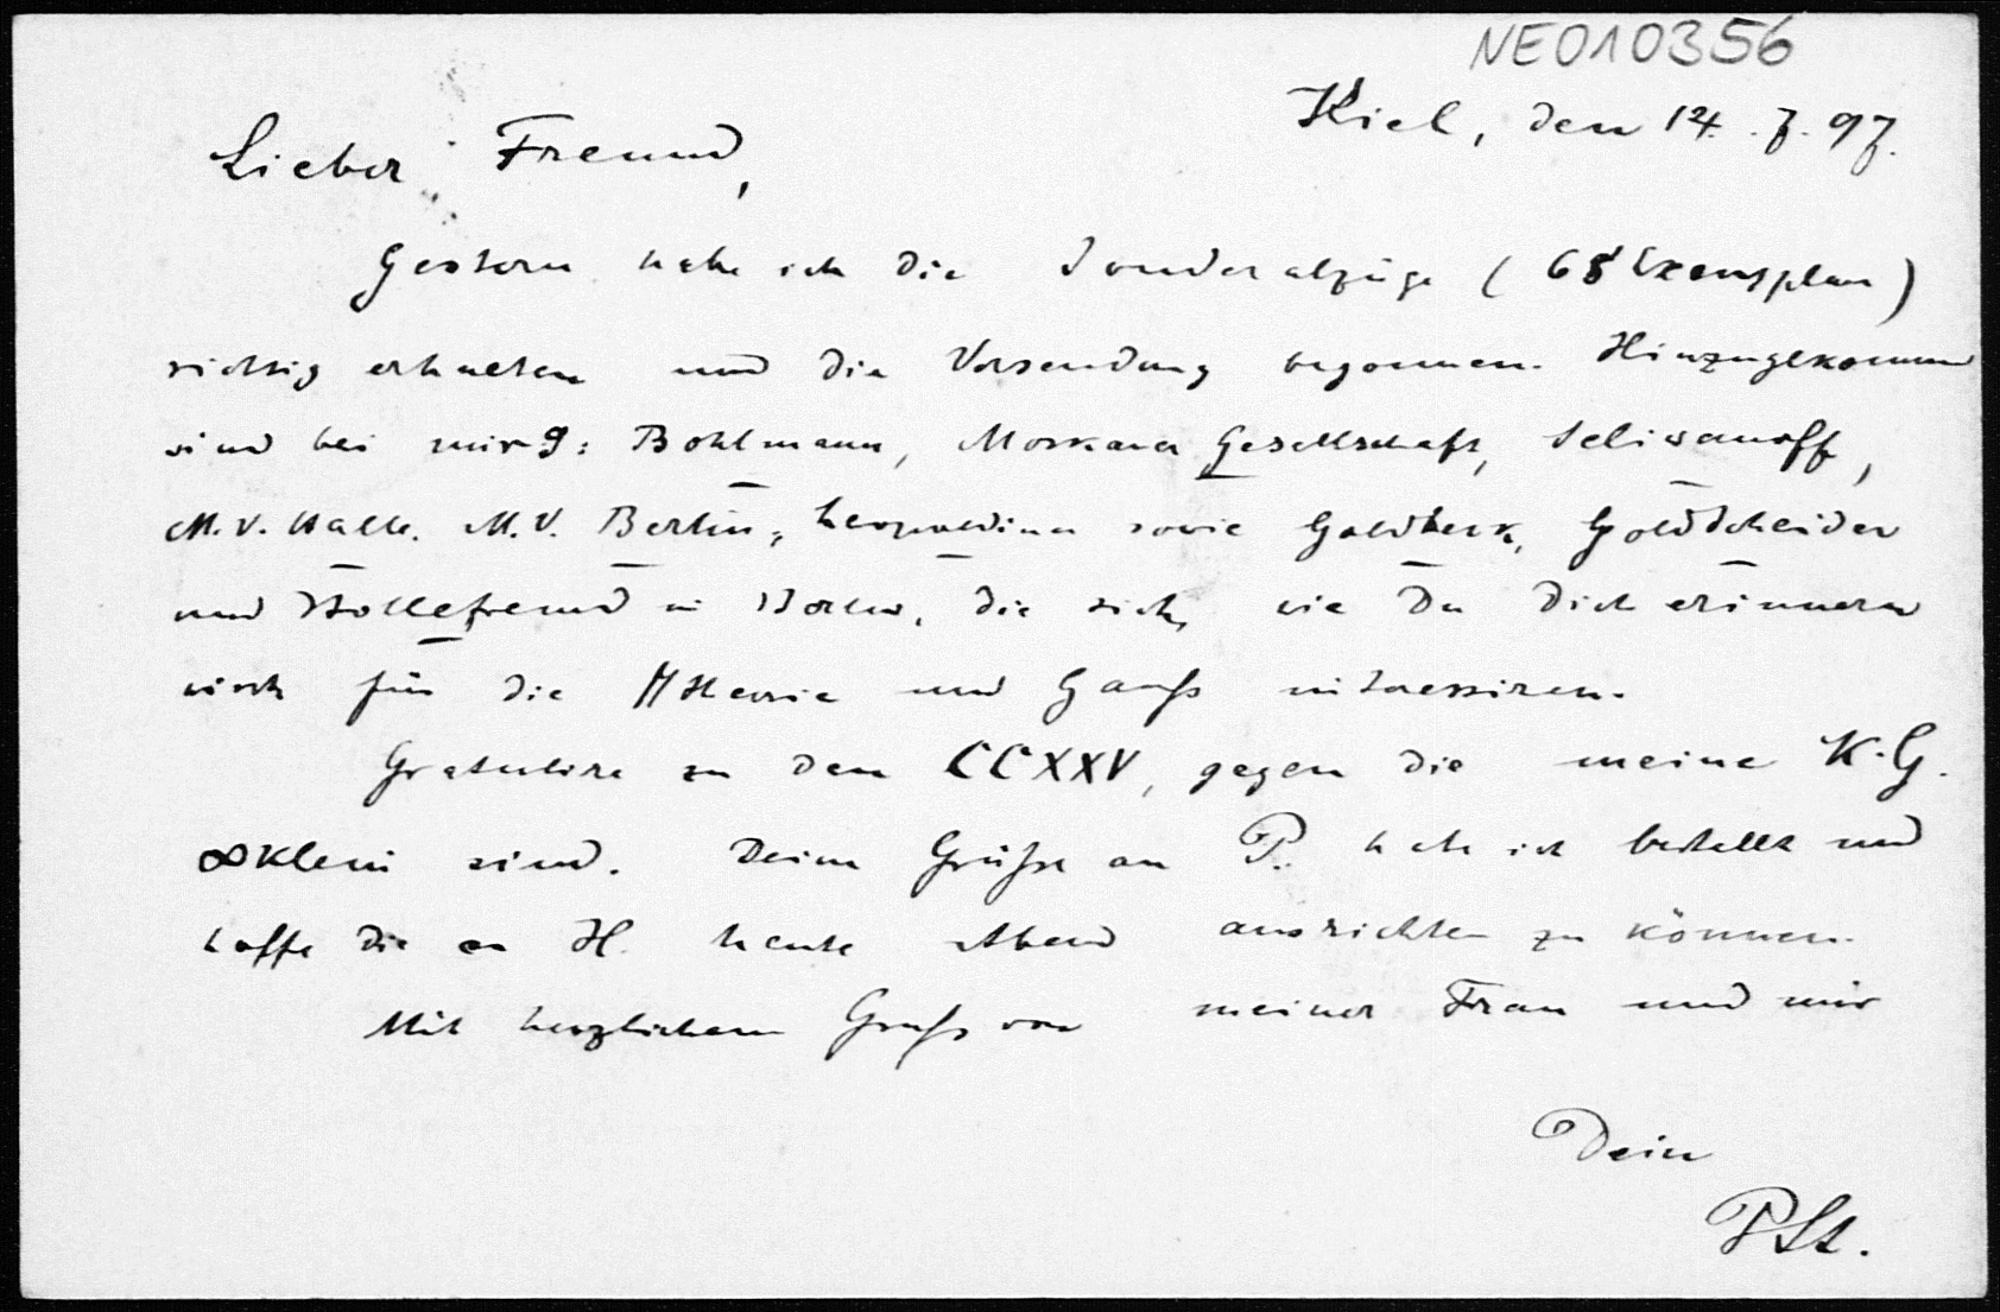 NE010356
Kiel, den 14.7.97.
Lieber Freund,
Gestern habe ich die Sonderabzüge (68 Exemplare)
richtig erhalten und die Versendung begonnen. Hinzugekommen
sind bei mir 9: Bohlmann, Moskauer Gesellschaft, Seliwanoff,
M.V. Halle. M.V. Berlin, Leopoldina sowie Goldbeck, Goldscheider
und Hollefreund in Berlin, die sich, wie Du Dich erinnern
wirst für die Theorie und Gauß interessiren.
Gratulire zu den CCXXV, gegen die meine K.G.
∞klein sind. Deine Grüße an P. habe ich bestellt und
hoffe die an H. heute Abend ausrichten zu können.
Mit herzlichem Gruß von meiner Frau und mir
Dein
PSt.